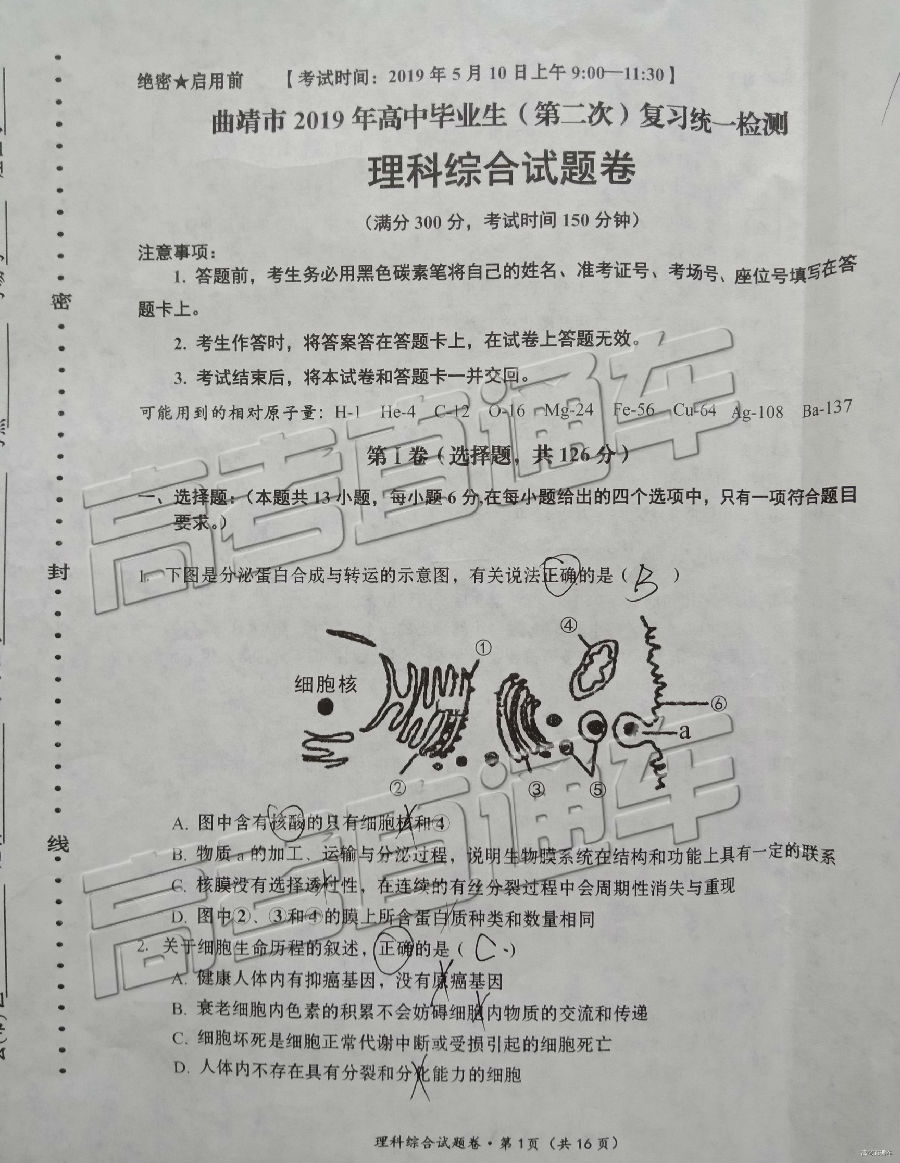 绝密★启用前 【考试时间：2019年5月10日上午9:00—11:30】
曲靖市2019年高中毕业生（第二次）复习统一检测
理科综合试题卷
（满分300分，考试时间150分钟）
注意事项：
1. 答题前，考生务必用黑色碳素笔将自己的姓名、准考证号、考场号、座位号填写在答
题卡上。
2. 考生作答时，将答案答在答题卡上，在试卷上答题无效。
3. 考试结束后，将本试卷和答题卡一并交回。
可能用到的相对原子量：H-1 He-4 C-12 O-16 Mg-24 Fe-56 Cu-64 Ag-108 Ba-137
第Ⅰ卷（选择题，共126分）
一、选择题：（本题共13小题，每小题6分,在每小题给出的四个选项中，只有一项符合题目
要求。）
1. 下图是分泌蛋白合成与转运的示意图，有关说法正确的是（ B ）
细胞核
①
④
⑥
a
②
③
⑤
A. 图中含有核酸的只有细胞核和④
B. 物质a的加工、运输与分泌过程，说明生物膜系统在结构和功能上具有一定的联系
C. 核膜没有选择透过性，在连续的有丝分裂过程中会周期性消失与重现
D. 图中②、③和④的膜上所含蛋白质种类和数量相同
2. 关于细胞生命历程的叙述，正确的是（ C ）
A. 健康人体内有抑癌基因，没有原癌基因
B. 衰老细胞内色素的积累不会妨碍细胞内物质的交流和传递
C. 细胞坏死是细胞正常代谢中断或受损引起的细胞死亡
D. 人体内不存在具有分裂和分化能力的细胞
理科综合试题卷·第1页（共16页）
密
封
线
高考直通车
高考直通车